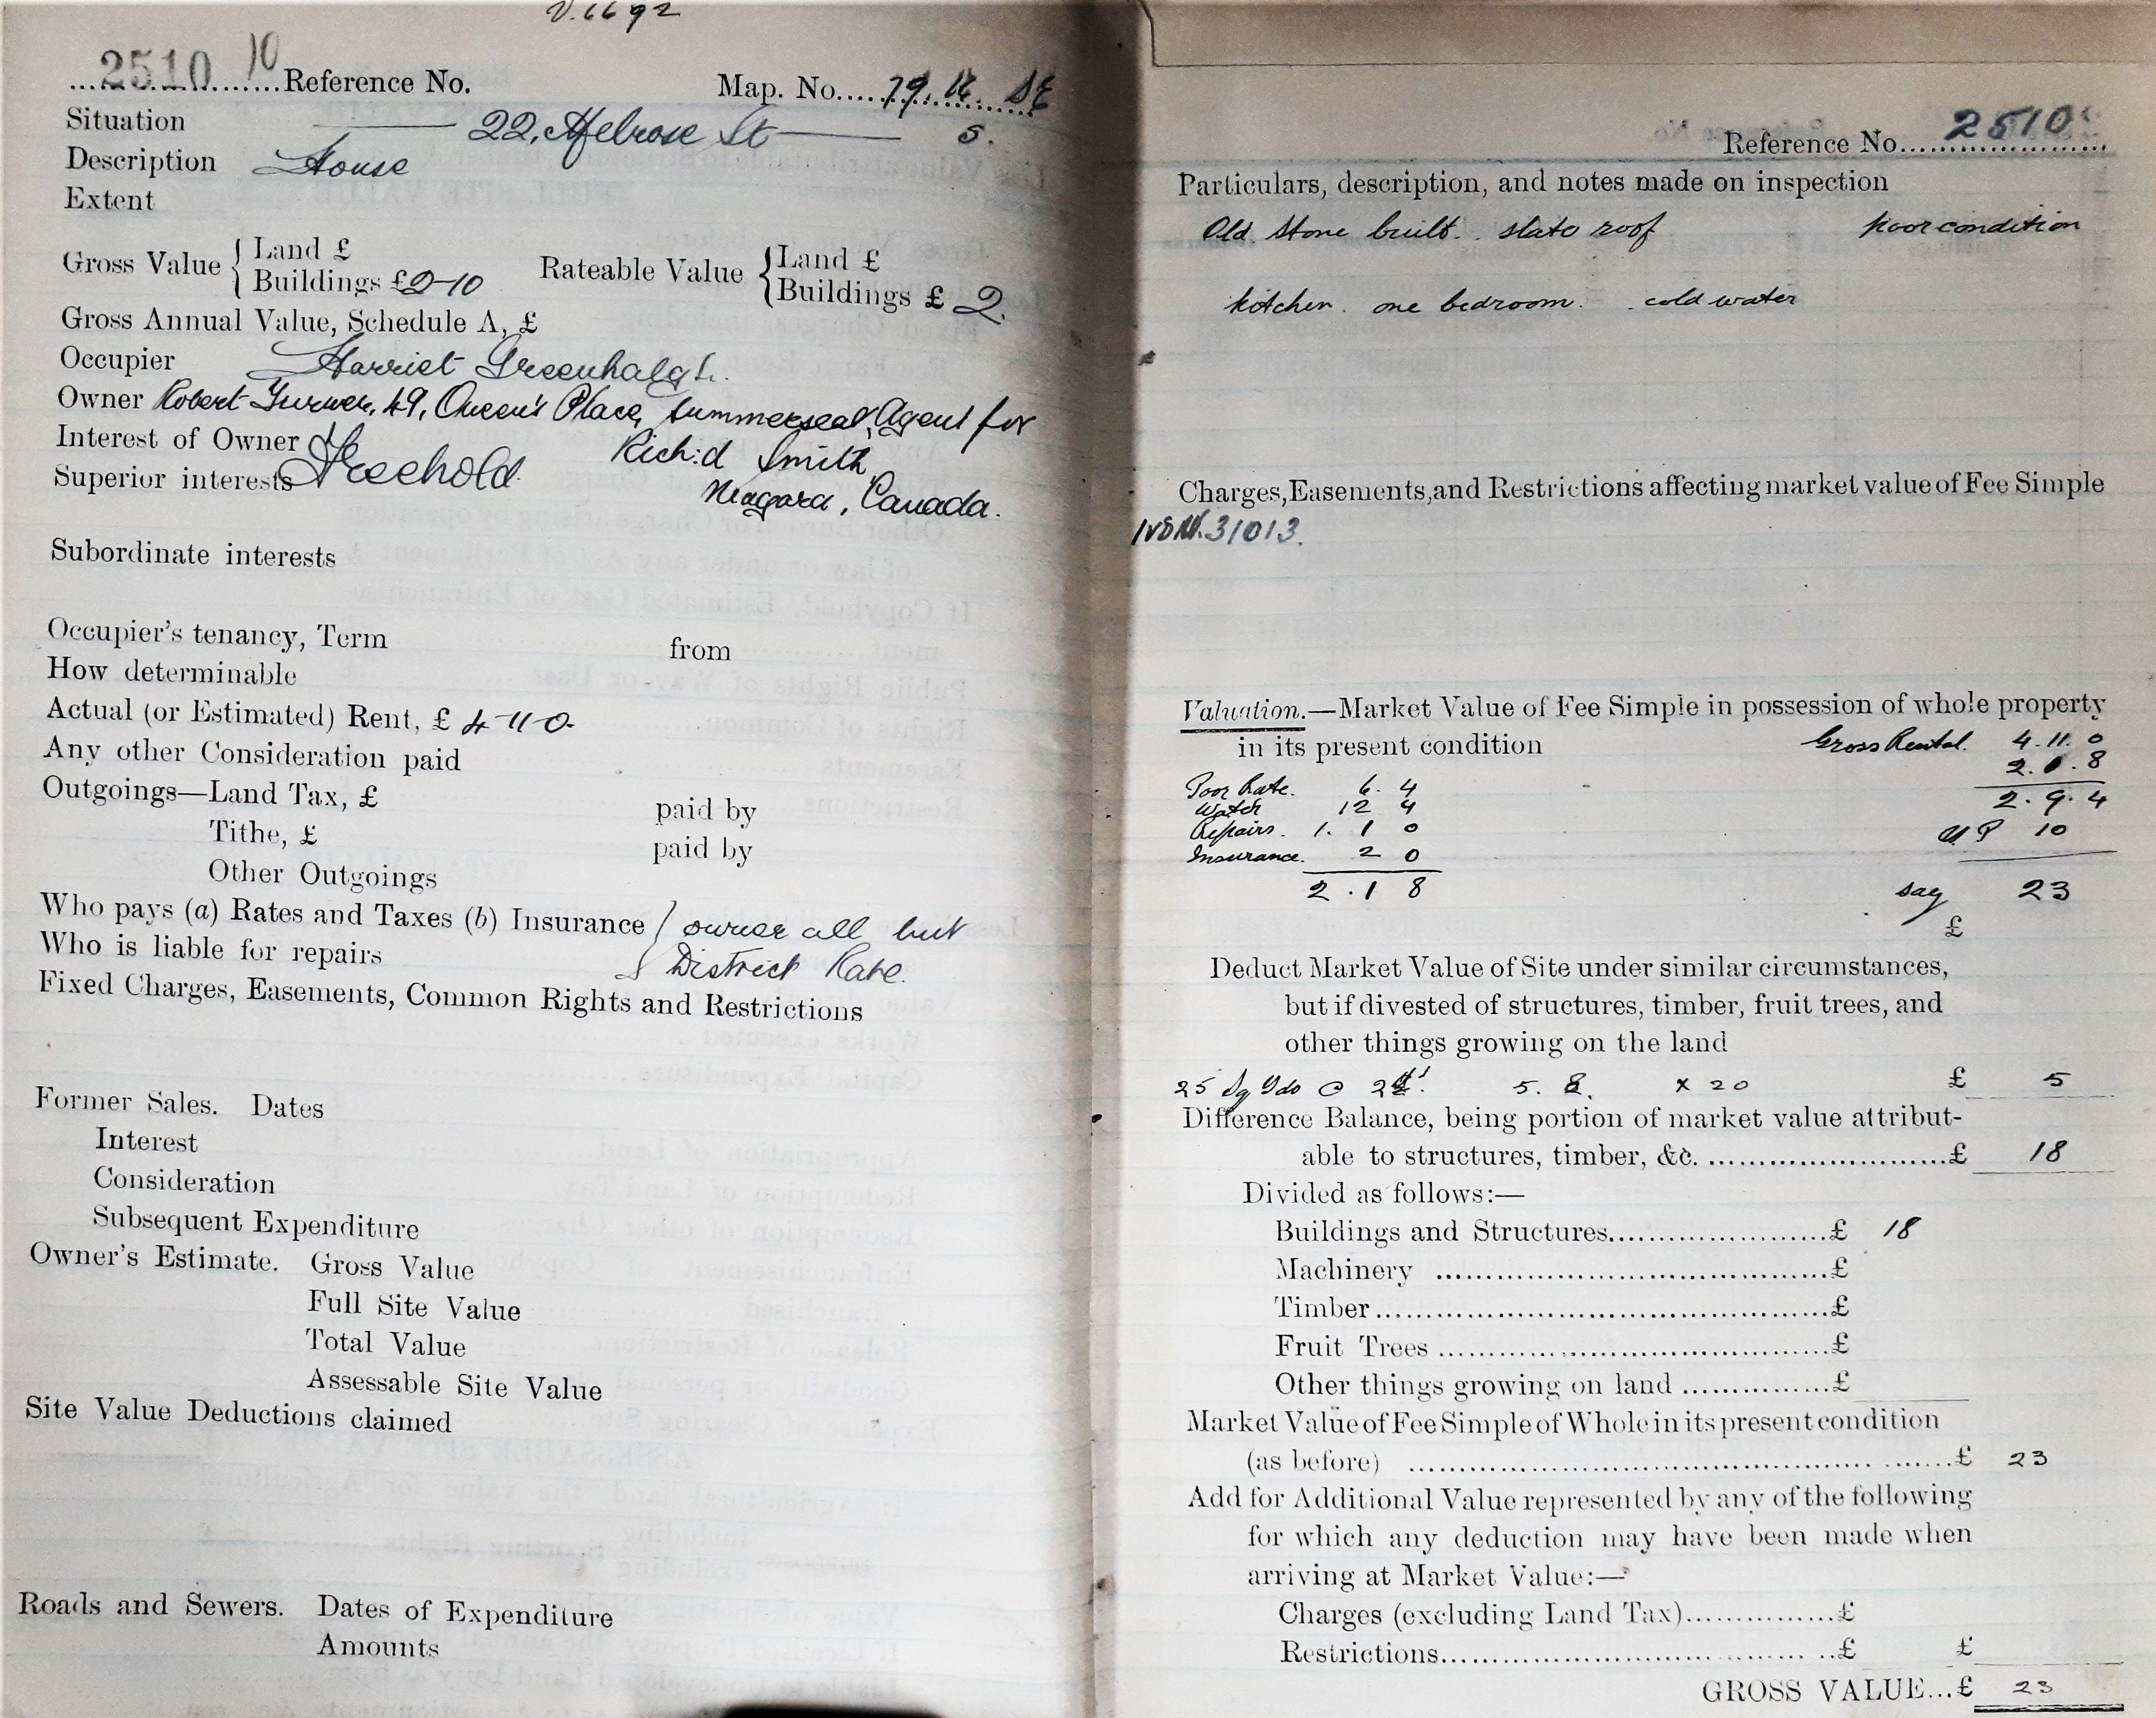 V.6692
2510 10 Reference No. Map. No. 79. 16. SE
Situation 22, Melrose St 5.
Description House
Extent
Gross Value { Land £
Buildings £2-10
Rateable Value { Land £
Buildings £ 2.
Gross Annual Value, Schedule A, £
Occupier Harriet Greenhalgh.
Owner Robert Turner, 49, Queen's Place, Summerseat, Agent for
Interest of Owner Freehold. Rich:d Smith
Superior interests Niagara, Canada.
Subordinate interests
Occupier's tenancy, Term from
How determinable
Actual (or Estimated) Rent, £ 4-11-0
Any other Consideration paid
Outgoings—Land Tax, £ paid by
Tithe, £ paid by
Other Outgoings
Who pays (a) Rates and Taxes (b) Insurance } owner all but
Who is liable for repairs } District Rate.
Fixed Charges, Easements, Common Rights and Restrictions
Former Sales. Dates
Interest
Consideration
Subsequent Expenditure
Owner's Estimate. Gross Value
Full Site Value
Total Value
Assessable Site Value
Site Value Deductions claimed
Roads and Sewers. Dates of Expenditure
Amounts
Reference No. 2510
Particulars, description, and notes made on inspection
Old stone built. slate roof poor condition
kitchen. one bedroom. cold water
Charges, Easements, and Restrictions affecting market value of Fee Simple
31013.
Valuation.—Market Value of Fee Simple in possession of whole property
in its present condition Gross Rental. 4.11.0
2.1.8
Poor Rate. 6.4 2.9.4
Water 12 4
Repairs. 1.1 0 10
Insurance. 2 0
2.1 8 say 23
£
Deduct Market Value of Site under similar circumstances,
but if divested of structures, timber, fruit trees, and
other things growing on the land
25 Sq Yds @ 5. 8. x 20 £ 5
Difference Balance, being portion of market value attribut-
able to structures, timber, &c. £ 18
Divided as follows:—
Buildings and Structures £ 18
Machinery £
Timber £
Fruit Trees £
Other things growing on land £
Market Value of Fee Simple of Whole in its present condition
(as before) £ 23
Add for Additional Value represented by any of the following
for which any deduction may have been made when
arriving at Market Value:—
Charges (excluding Land Tax) £
Restrictions £ £
GROSS VALUE...£ 23